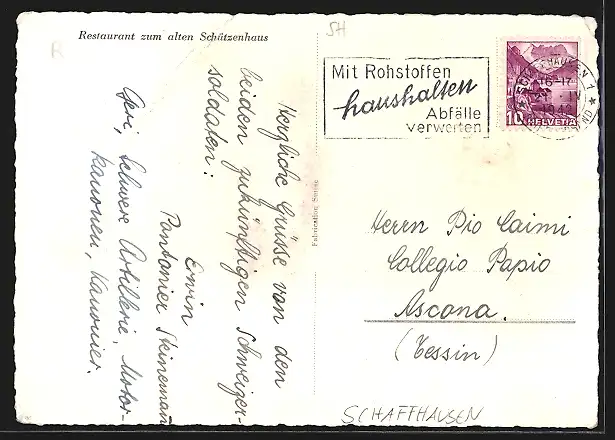 Restaurant zum alten Schützenhaus
SH
Herzliche Grüsse von den
beiden zukünftigen Schweizer-
soldaten:
Erwin
Pontonier
Geri, Schwere Artillerie, Motor-
kanonen, Kanonier.
Fabrication Suisse
Mit Rohstoffen
haushalten
Abfälle
verwerten
10 HELVETIA
SCHAFFHAUSEN 1
16-17
IV
Herrn Pio Caimi
Collegio Papio
Ascona.
(Tessin)
SCHAFFHAUSEN